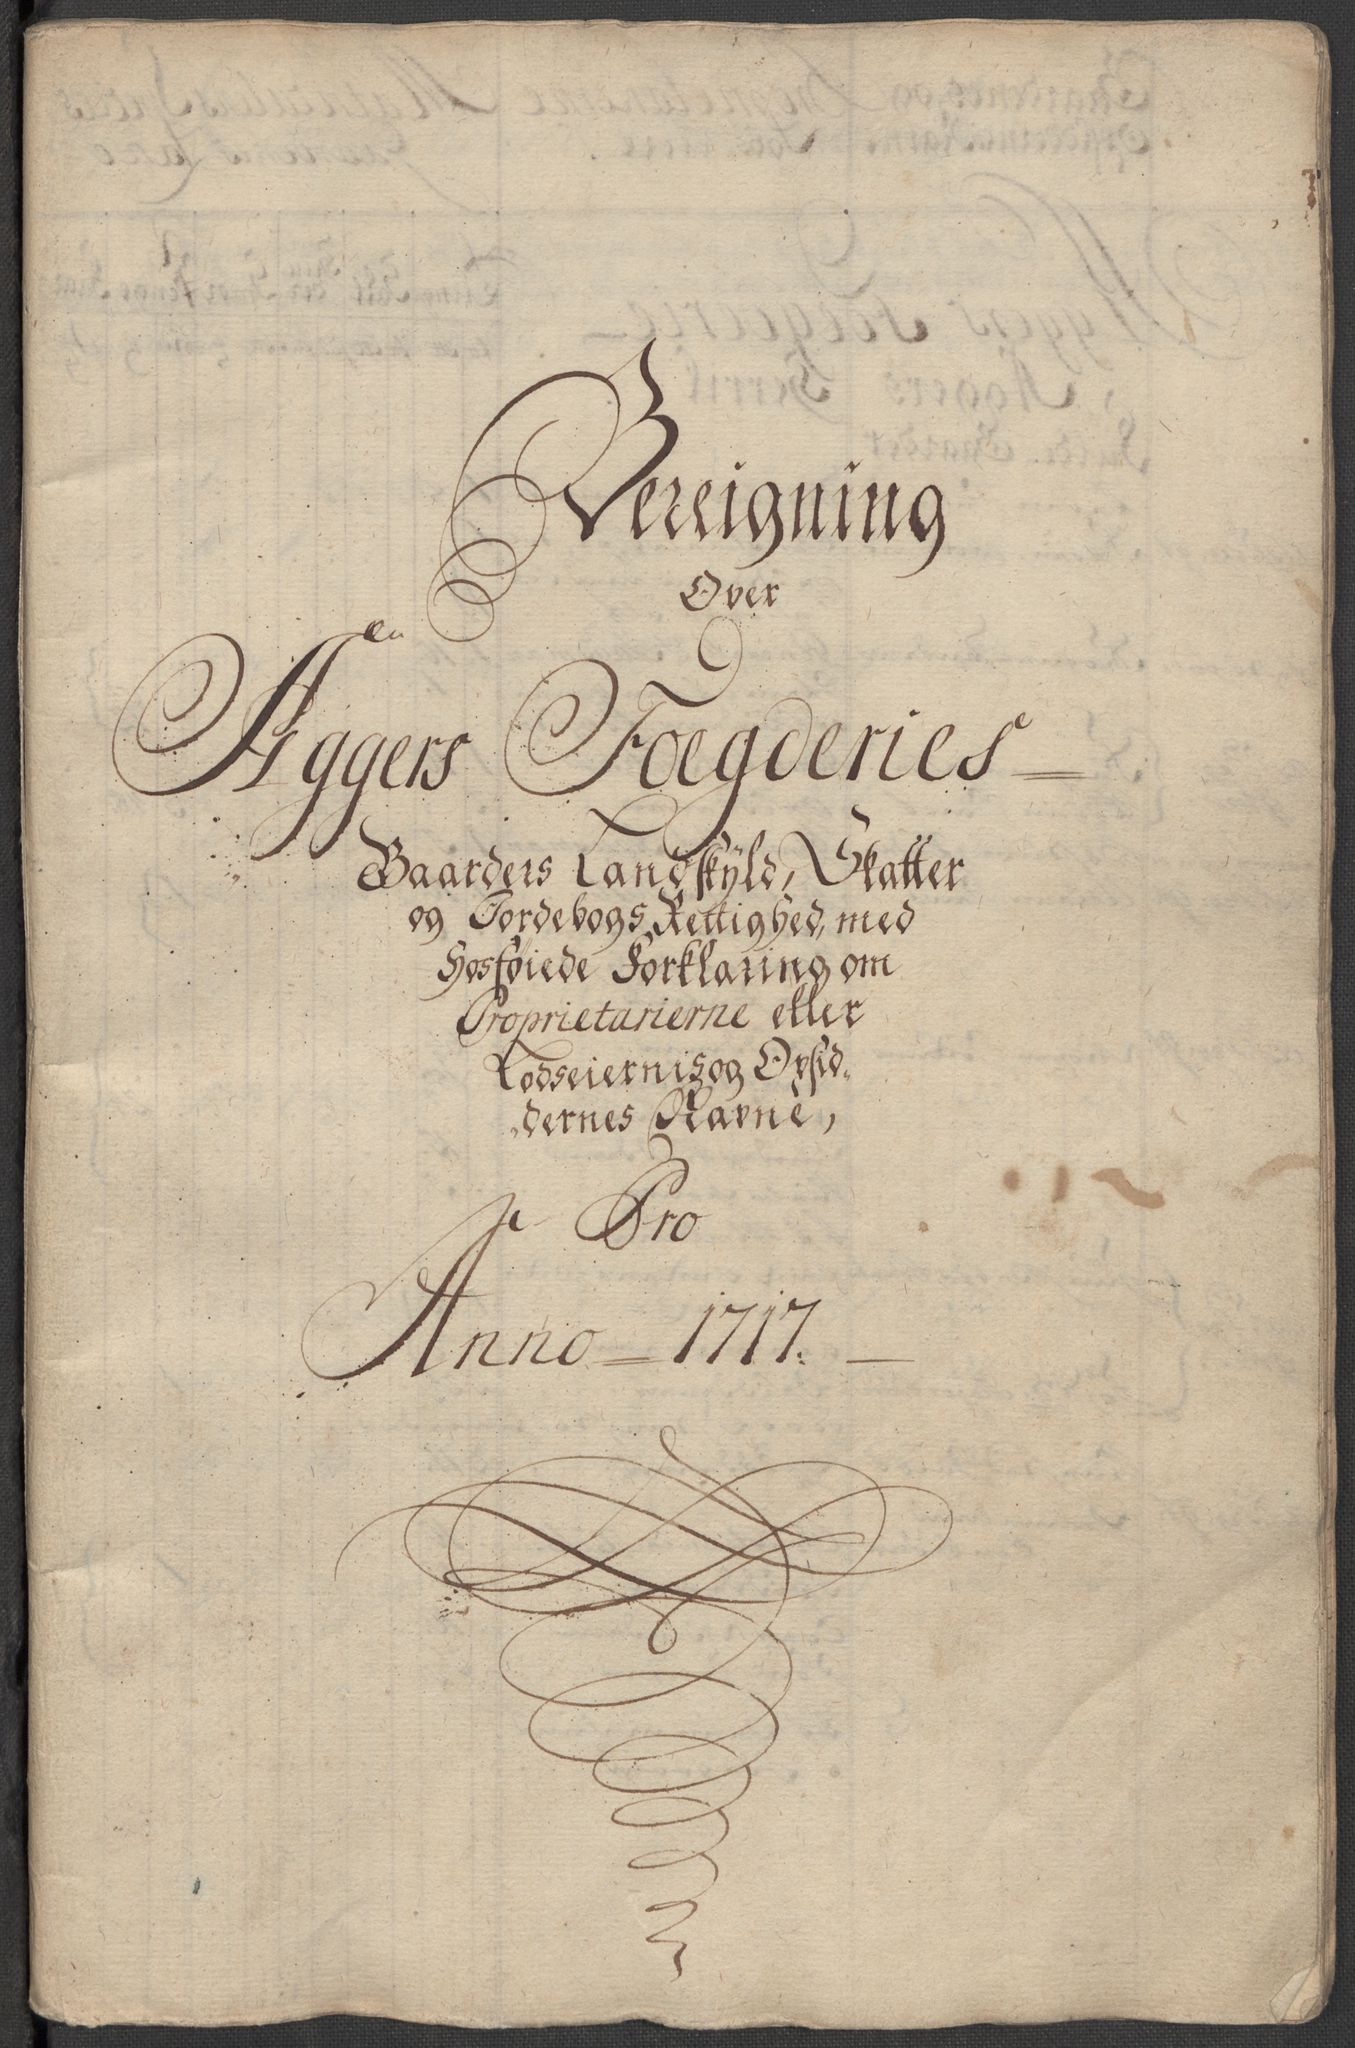 Bereigning
Over
Aggers Foegderies
Gaarders Landskyld, Skatter
og Jordebogs Rettighed, med
Hosføiede Forklaring om
Proprietarierne eller
Lodseiernis og Opsid-
dernes Navne,
Pro
Anno 1717.